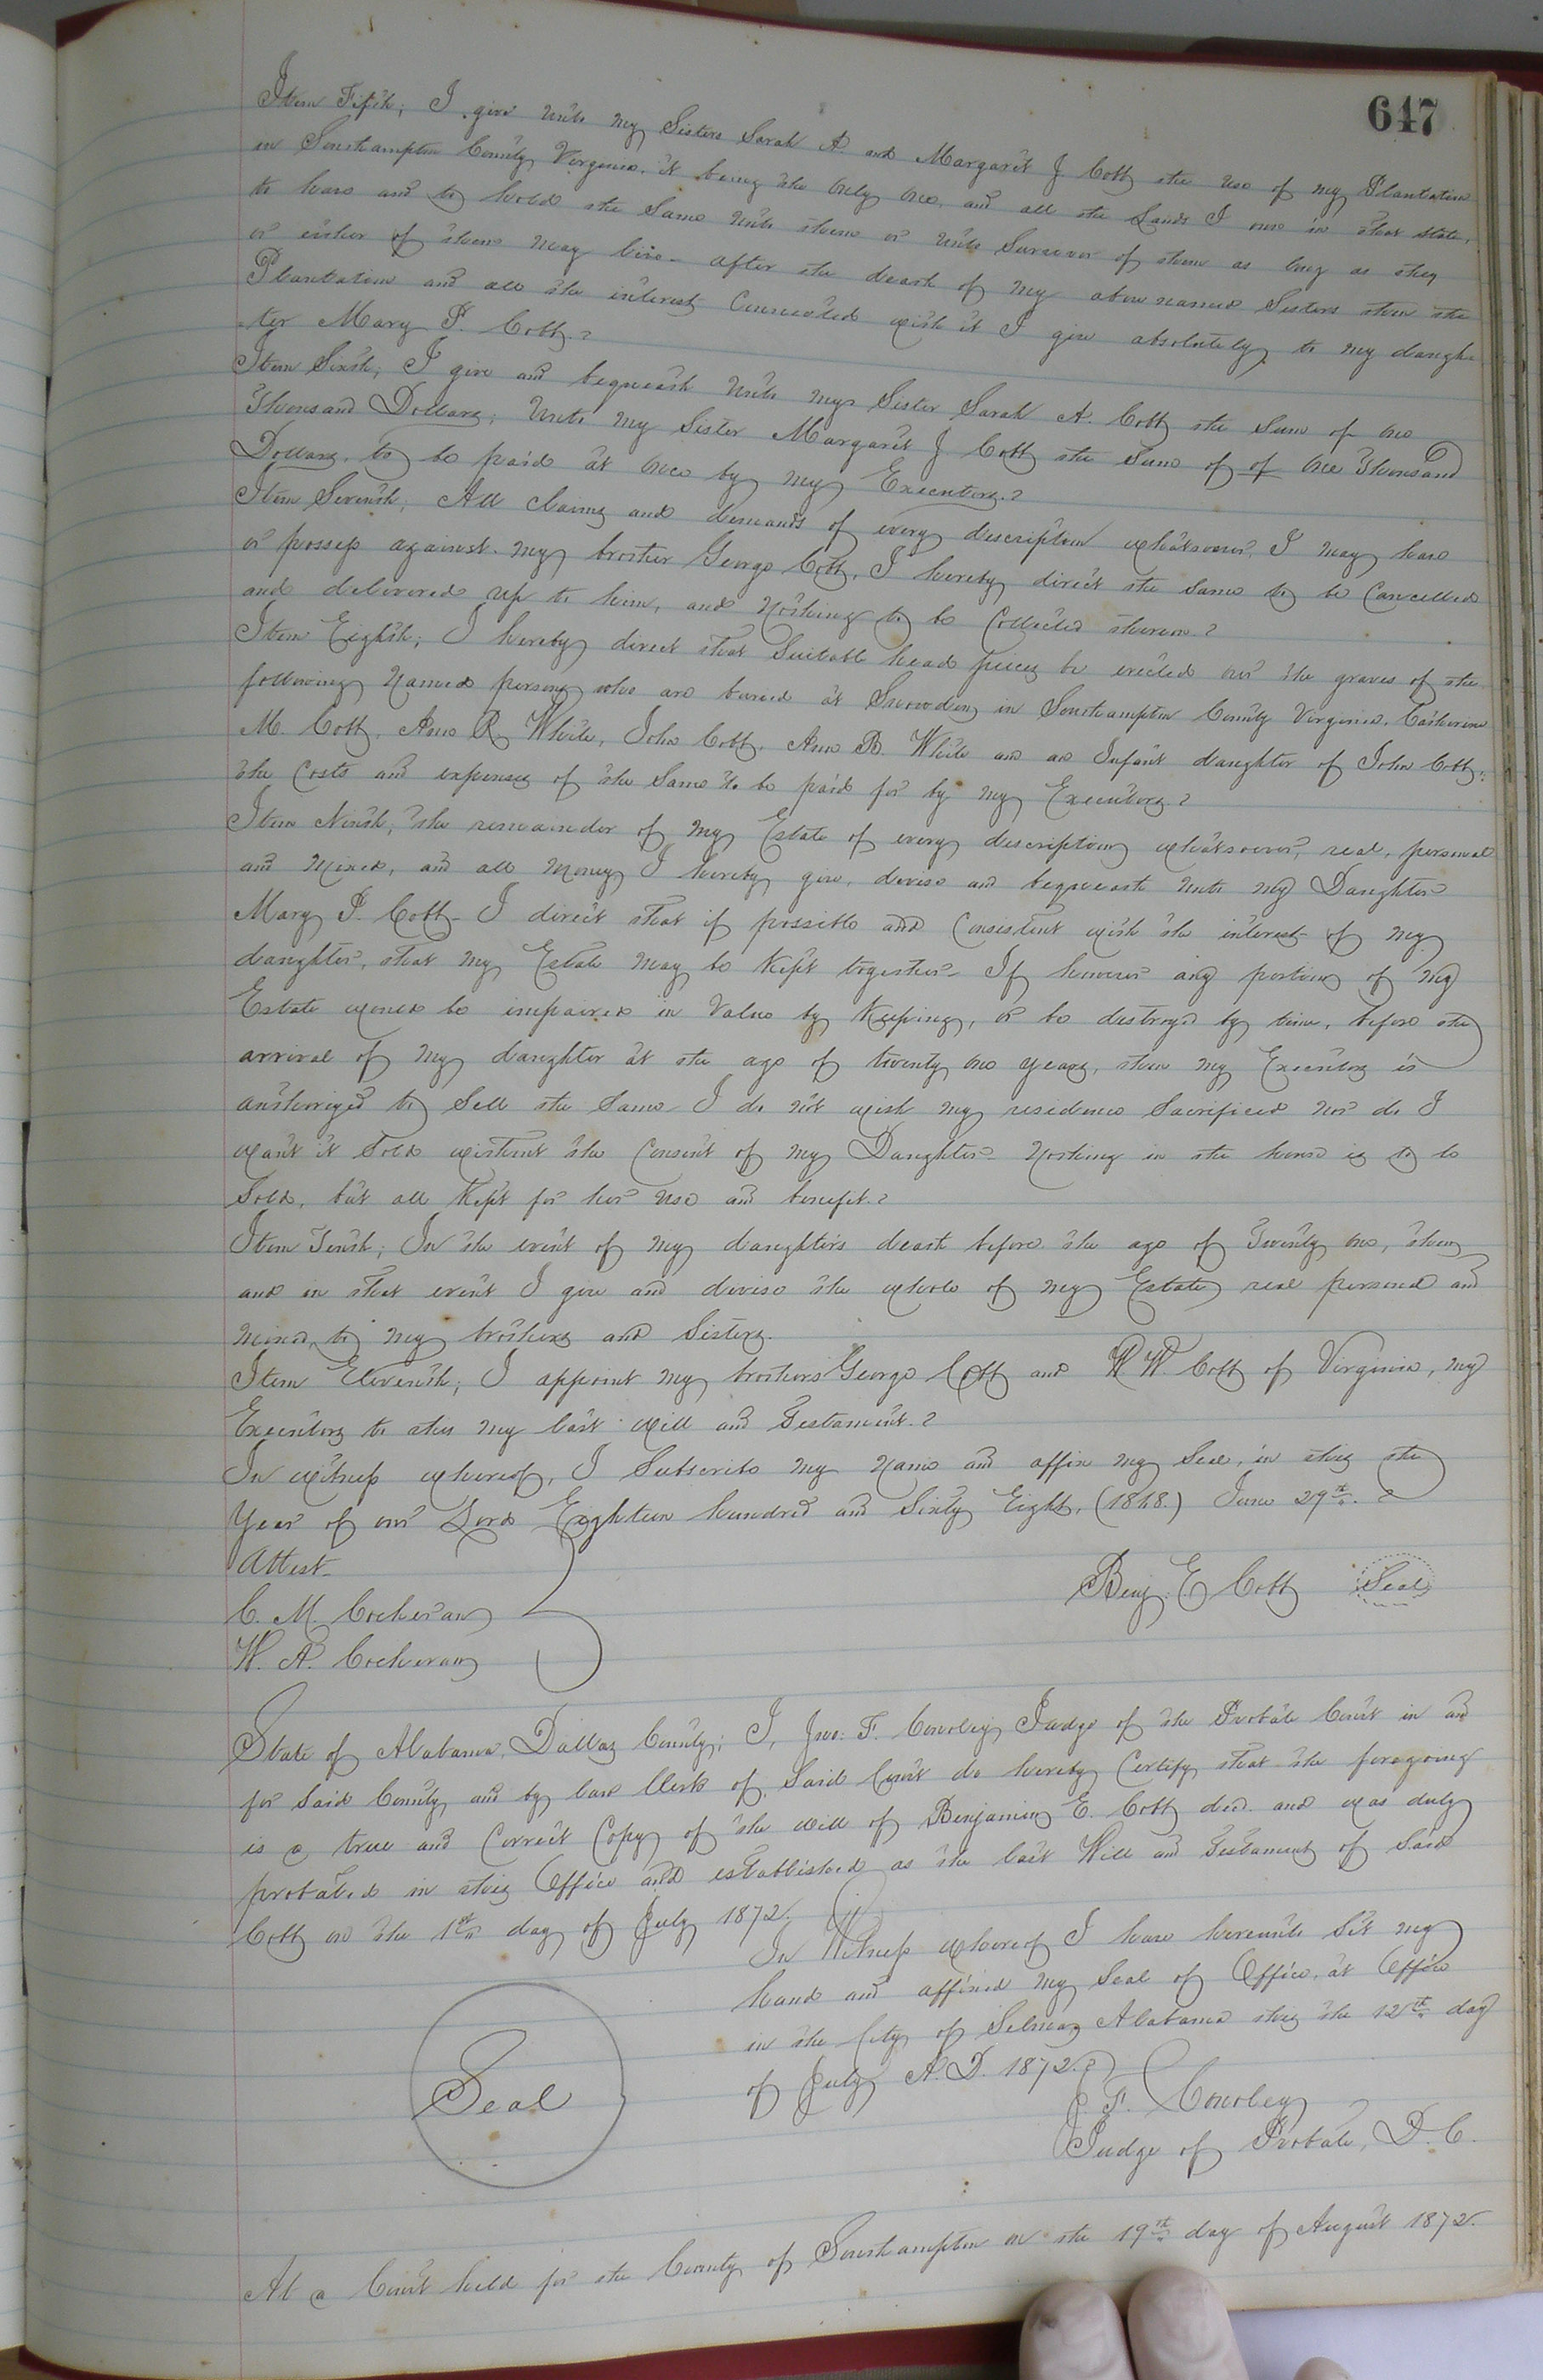 647
Item Fifth; I give unto my Sisters Sarah A. and Margaret J Cobb the use of my Plantation
in Southampton County Virginia, it being the only one, and all the Lands I own in that state,
to have and to hold the Same unto them or unto Survivor of them as long as they
or either of them may live – after the death of my above named Sisters then the
Plantation and all the interest Connected with it I give absolutely to my daugh
-ter Mary P. Cobb.
Item Sixth; I give and bequeath unto my Sister Sarah A. Cobb the Sum of One
Thousand Dollars; Unto my Sister Margaret J Cobb the Sum of of One Thousand
Dollars. to be paid at once by my Executors.
Item Seventh; All Claims and demands of every description whatsoever, I may have
or possess against my brother George Cobb, I hereby direct the same to be Cancelled
and delivered up to him, and Nothing to be Collected thereon.
Item Eighth; I hereby direct that Suitable head pieces be erected over the graves of the
following Named persons who are buried at Snowden, in Southampton County Virginia. Catherine
M. Cobb, Ann R. White, John Cobb, Ann B. White and an Infant daughter of John Cobb;
the Costs and expenses of the Same to be paid for by my Executors
Item Ninth; the remainder of my Estate of every description whatsoever, real, personal
and Mixed, and all Money I hereby give, devise and bequeath unto my Daughter
Mary P. Cobb – I direct that if possible and Consistent with the interest of my
daughter, that my Estate may be Kept together – If however any portion of my
Estate would be impaired in Value by Keeping, or be destroyed by time, before the
arrival of my daughter at the age of twenty one years, then my Executors is
authorized to Sell the Same – I do not wish my residence Sacrificed nor do I
want it Sold without the Consent of my Daughter – Nothing in the house is to be
Sold, but all Kept for her use and benefit.
Item Tenth; In the event of my daughters death before the age of Twenty one, then
and in that event I give and devise the whole of my Estate, real personal and
mixed, to my brothers and Sisters.
Item Eleventh; I appoint my brothers George Cobb and W W. Cobb of Virginia, my
Executors to this my last will and Testament.
In witness whereof, I Subscribe my Name and affix my Seal, in this the
Year of our Lord Eighteen hundred and Sixty Eight, (1868.) June 29th.
Attest –
Benj. E Cobb Seal
C. M. Cocheran
W. A. Cocheran
State of Alabama, Dallas County; I, Jno: F. Conoley, Judge of the Probate Court in and
for Said County and by law Clerk of Said Court do hereby Certify that the foregoing
is a true and Correct Copy of the will of Benjamin E. Cobb decd. and was duly
probated in this Office and established as the last Will and Testament of Said
Cobb on the 1st day of July 1872.
In Witness whereof I have hereunto Set my
hand and affixed my Seal of Office, at Office
in the City of Selma, Alabama this the 12th day
of July A. D. 1872.
Seal
J. F. Conoley
Judge of Probate, D. C.
At a Court held for the County of Southampton on the 19th day of August 1872.